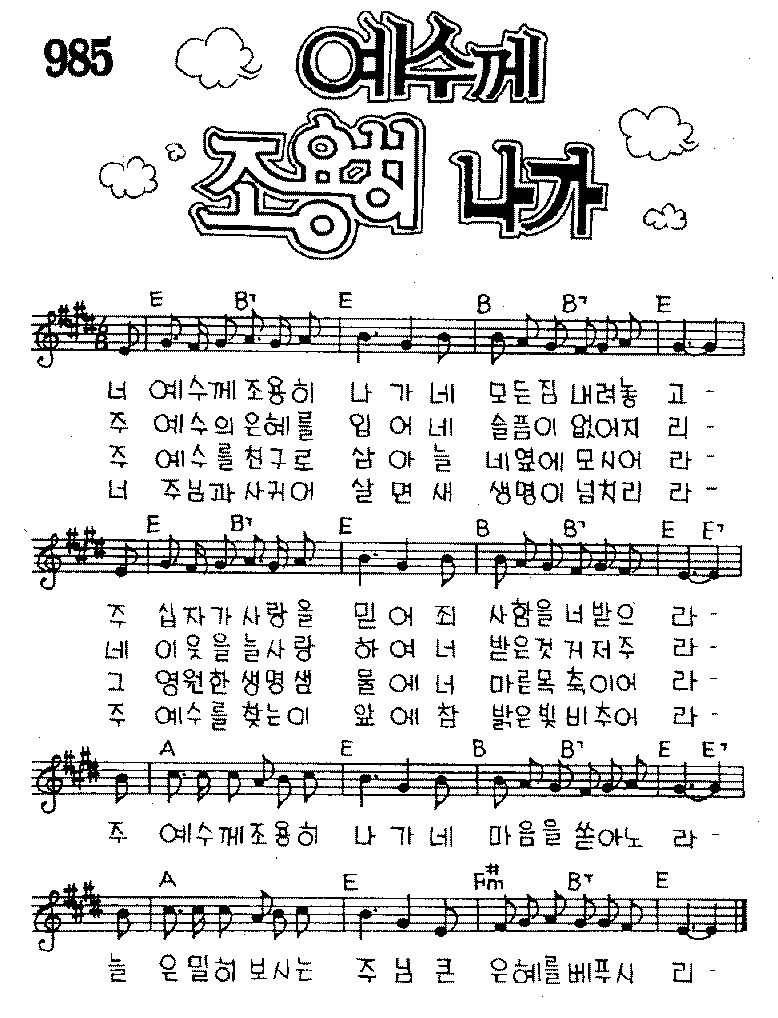 985
예수께
조용히 나가
E B7 E B B7 E
너 예수께 조용히 나 가 네 모든짐 내려놓 고 -
주 예수의 은혜를 입 어 네 슬픔이 없어지 리 -
주 예수를 친구로 삼 아 늘 네옆에 모시어 라 -
너 주님과 사귀어 살 면 새 생명이 넘치리 라 -
E B7 E B B7 E E7
주 십자가 사랑을 믿 어 죄 사함을 너받으 라 -
네 이웃을 늘사랑 하 여 너 받은것 거저주 라 -
그 영원한 생명샘 물 에 너 마른목 축이어 라 -
주 예수를 찾는이 앞 에 참 밝은빛 비추어 라 -
A E B B7 E E7
주 예수께조용히 나 가 네 마음을 쏟아노 라 -
A E F#m B7 E
늘 은밀히 보시는 주 님 큰 은혜를베푸시 리 -